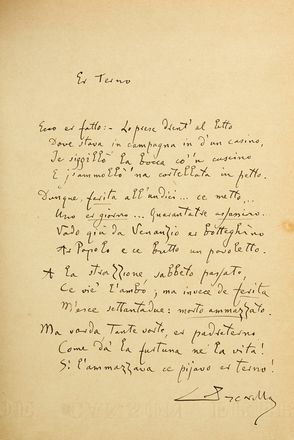 Er Terno
Ecco er fatto: - Lo prese drent' al letto
Dove stava in campagna in d'un casino,
Je siggillò la bocca co'n cuscino
E j'ammollò 'na cortellata in petto.
Dunque, ferita all'undici ... ce metto ...
Uno er giorno ... Quarantatre assassino..
Vado giù da Venanzio er botteghino
Ar Popolo e ce butto un pavoletto.
A la strazzione sabbeto passato,
Ce viè l'ambo; ma invece de ferita
M'esce settantadue: morto ammazzato.
Ma varda tante vorte er padreterno
Come dà la furtuna ne la vita!
Si l'ammazzava ce pijavo er terno!